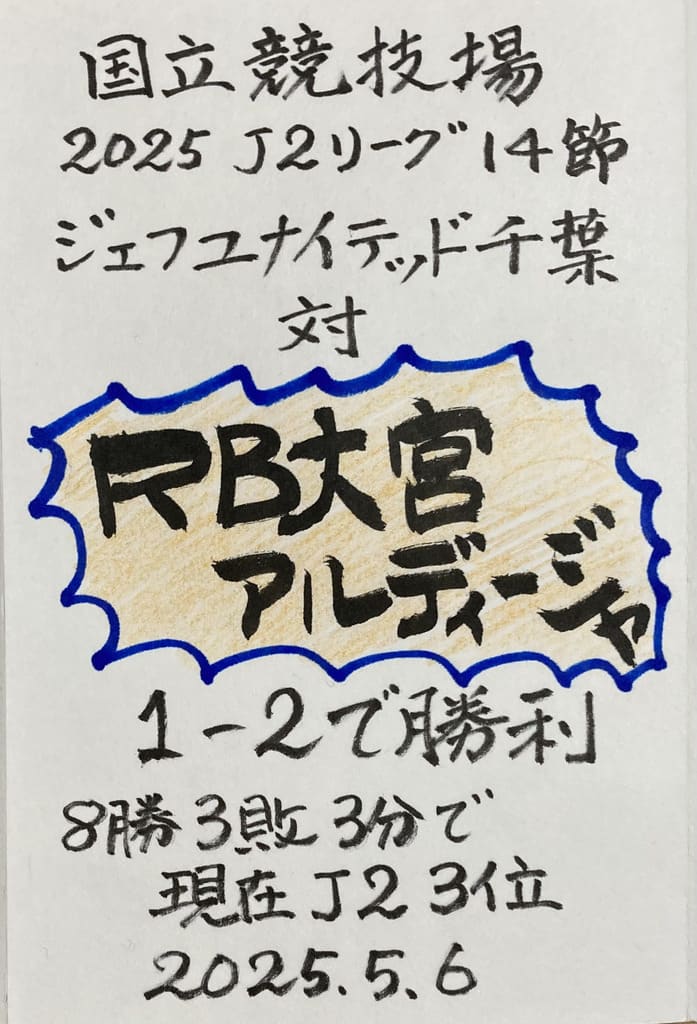 国立競技場
2025 J2リーグ 14節
ジェフユナイテッド千葉
対
RB大宮
アルディージャ
1-2で勝利
8勝3敗3分で
現在J2 3位
2025.5.6